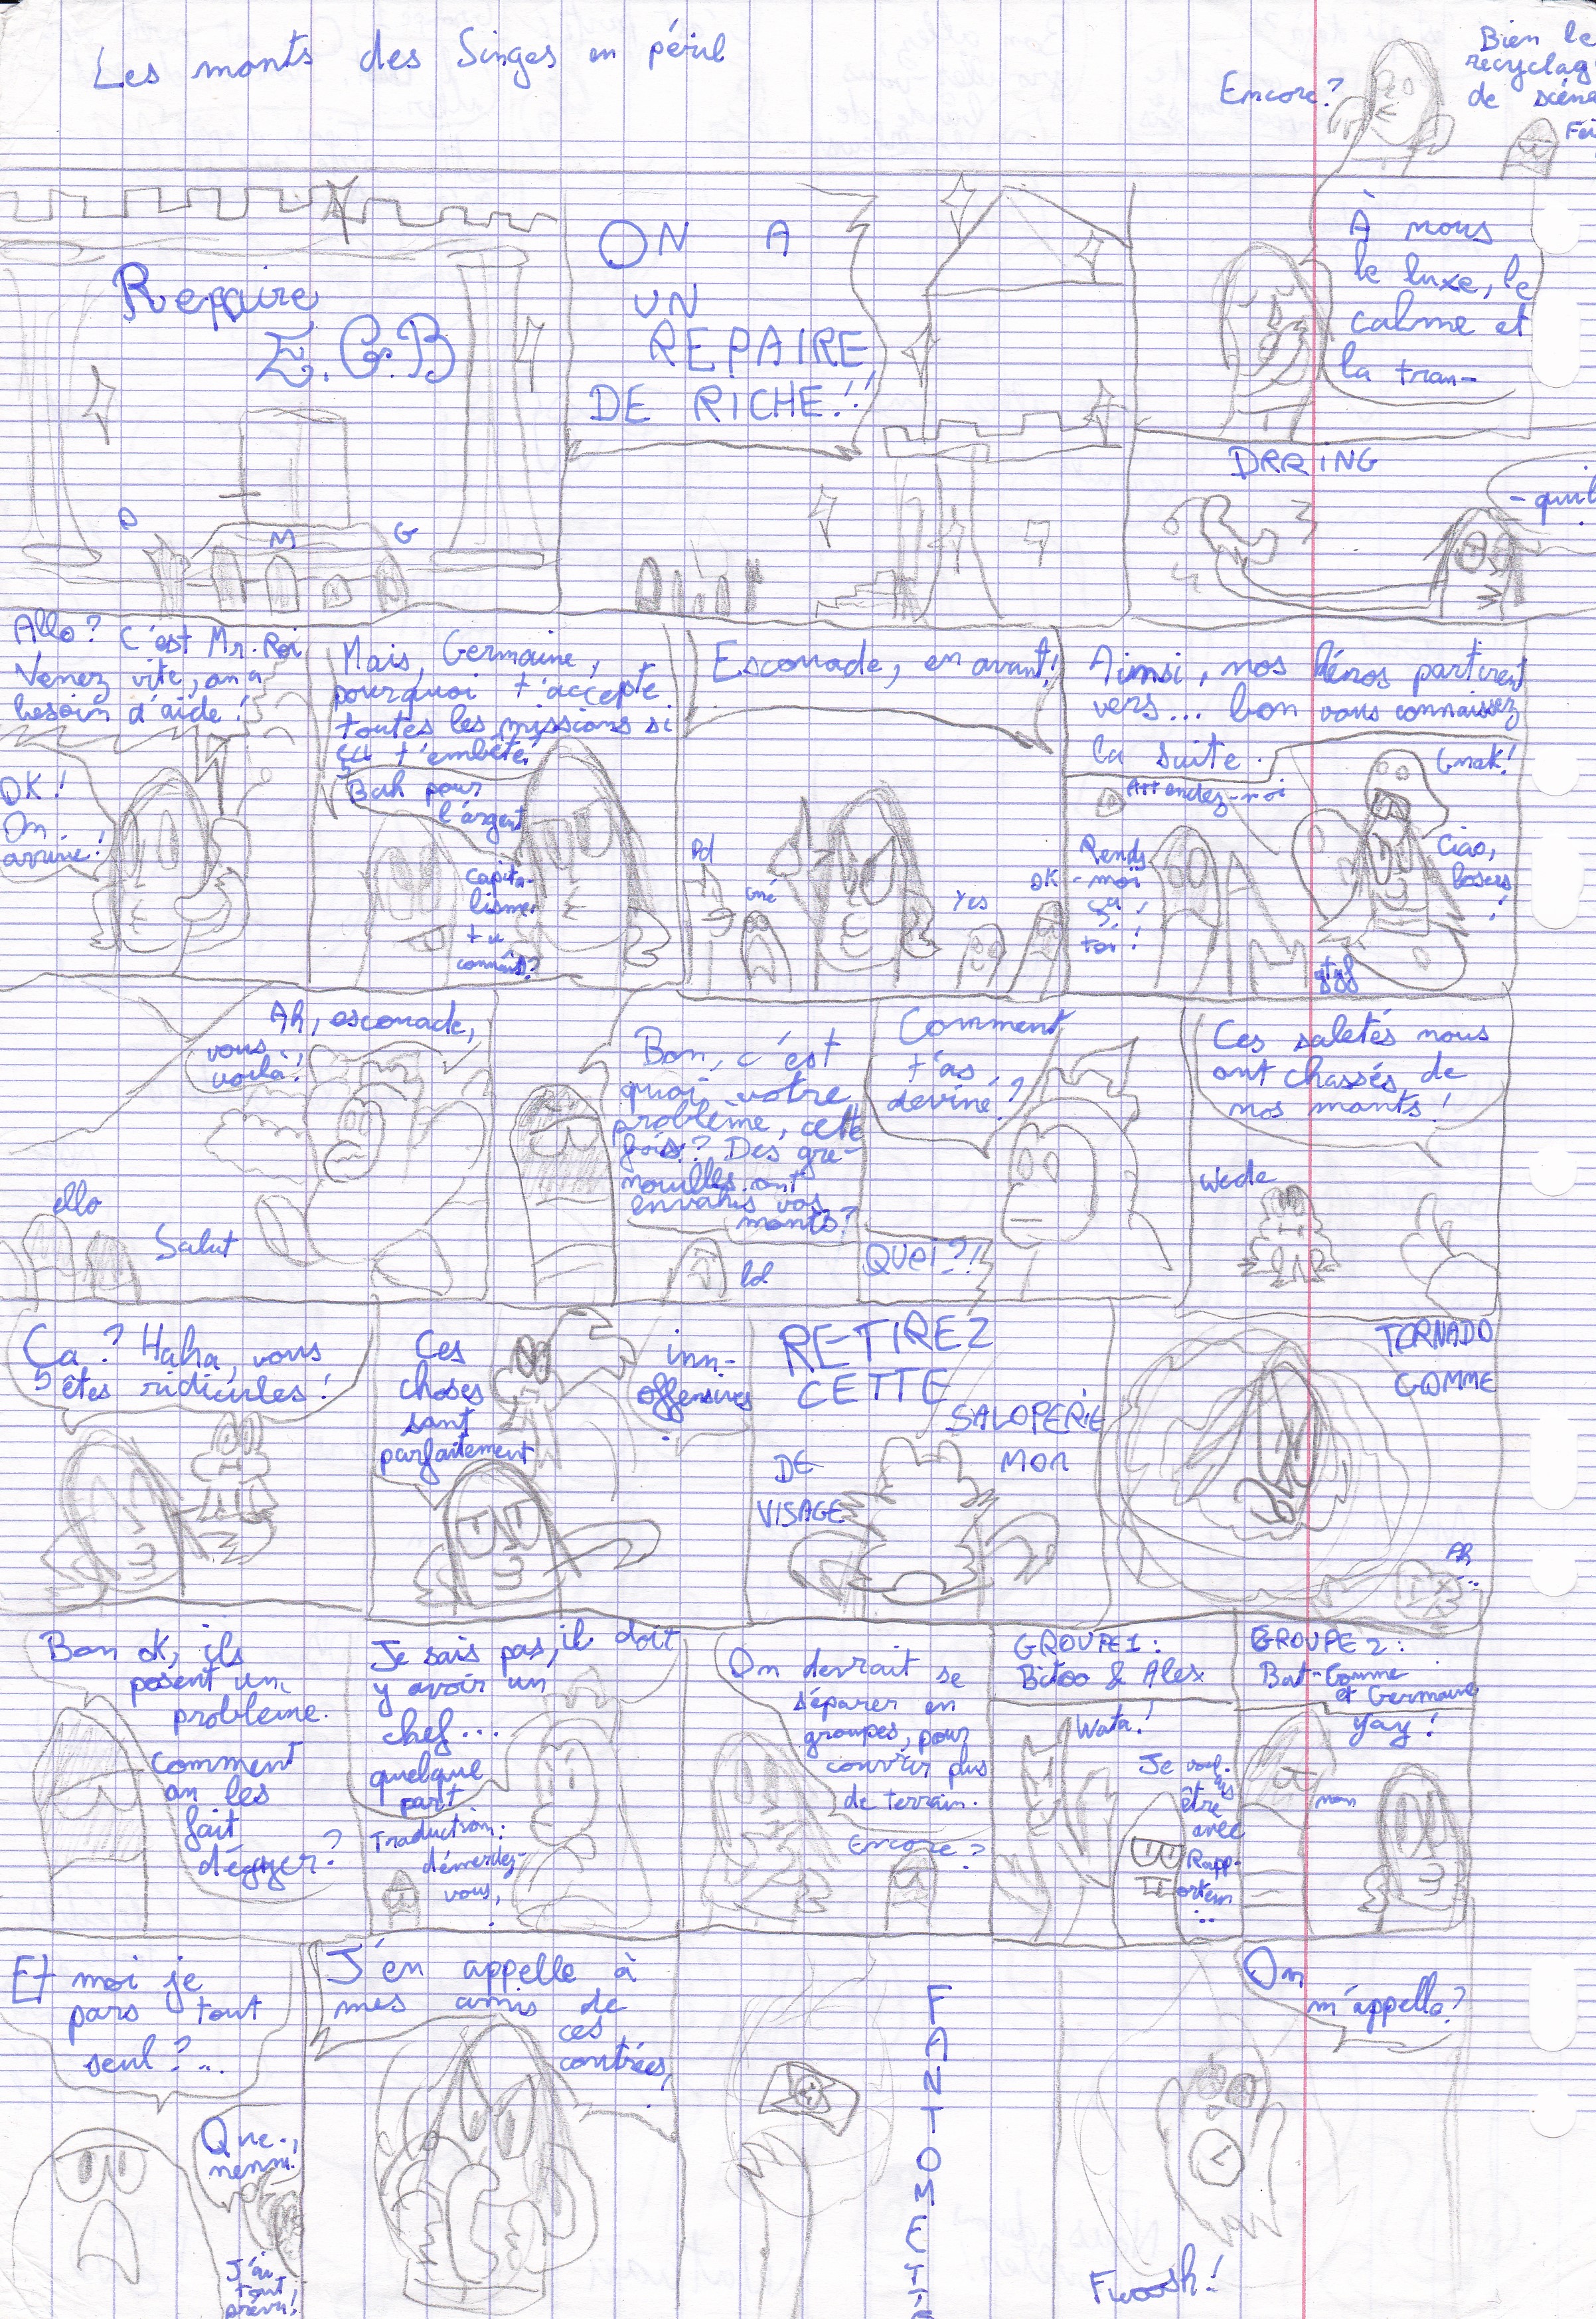 Les monts des Singes en péril
Encore?
Bien le
recyclag
de scéna
Repaire
E.G.B
D
M
G
ON A
UN
REPAIRE
DE RICHE!!
À nous
le luxe, le
calme et
la tran-
DRRING
-quil
Allo? C'est Mr. Roi
Venez vite, on a
besoin d'aide!
OK!
On
arrive!
Mais, Germaine,
pourquoi t'accepte
toutes les missions si
ça t'embête
Bah pour
l'argent
capita-
lisme
tu
connais?
Escouade, en avant!
Yes
OK
Ainsi, nos héros partirent
vers... bon vous connaissez
la suite.
Attendez-moi
Rends
-moi
ça
toi!
Gnak!
Ciao,
losers
!
Ah, escouade,
vous
voilà!
ello
Salut
Bon, c'est
quoi votre
problème, cette
fois? Des gre-
nouilles ont
envahis vos
monts?
Comment
t'as
deviné?
QUOI?!
Ces saletés nous
ont chassés de
nos monts!
Wede
Ça? Haha, vous
êtes ridicules!
Ces
choses
sont
parfaitement
inn-
offensives
.
RETIREZ
CETTE
SALOPERIE
DE
MON
VISAGE
TORNADO
GOMME
Ah
...
Bon ok, ils
posent un
problème.
Comment
on les
fait
dégager?
Je sais pas, il doit
y avoir un
chef...
quelque
part
Traduction:
démerdez-
vous,
!
On devrait se
séparer en
groupes, pour
couvrir plus
de terrain.
Encore?
GROUPE 1:
Bitoo & Alex
Wata!
Je voul-
ais
être
avec
Rapp-
ortein
...
GROUPE 2:
Bat-Gomme
et Germaine
Yay!
non
Et moi je
pars tout
seul?...
Que
nenni!
J'ai
tout
prévu!
J'en appelle à
mes amis de
ces
contrées,
F
A
N
T
O
M
E
T
T
On
m'appelle?
Fwoosh!